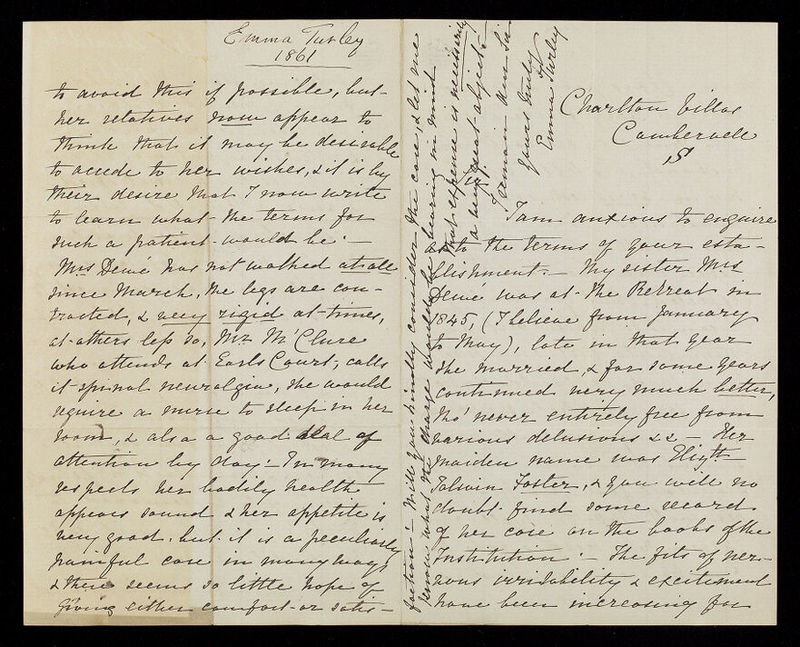 Charlton Villas
Camberwell
S
I am anxious to enquire
as to the terms of your esta-
blishment. — My sister Mrs
Dewé was at the Retreat in
1845, (I believe from January
to May), late in that year
she married, & for some years
continued very much better,
tho' never entirely free from
various delusions && — Her
maiden name was Elizth
Talwin Foster, & you will no
doubt find some record
of her case on the books of the
Institution. — The fits of ner-
vous irritability & excitement
have been increasing for
Emma Turley
1861
to avoid this if possible, but
her relatives now appear to
think that it may be desirable
to accede to her wishes, & it is by
their desire that I now write
to learn what the terms for
such a patient would be. —
Mrs Dewé has not walked at all
since March, the legs are con-
tracted, & very rigid at times,
at others less so, Mr McClure
who attends at Earls Court, calls
it spinal neuralgia, she would
require a nurse to sleep in her
room, & also a good deal of
attention by day. — In many
respects her bodily health
appears sound & her appetite is
very good, but it is a peculiarly
painful case in many ways
& there seems so little hope of
giving either comfort or satis-
faction — Will you kindly consider the case, & let me
know what the charge would be, bearing in mind
that expense is necessarily
a very great object.
I remain dear Sir
yours truly
Emma Turley